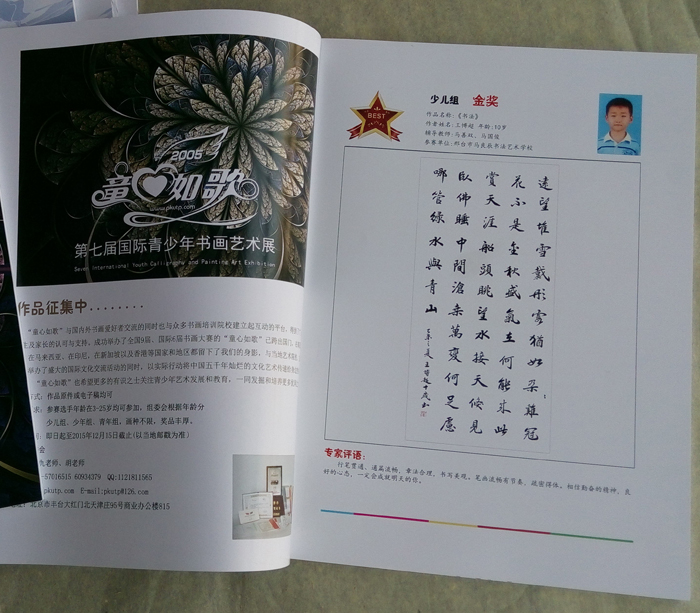 2005
童心如歌
www.pkutp.com
第七届国际青少年书画艺术展
Seven International Youth Calligraphy and Painting Art Exhibition
作品征集中........
"童心如歌"与国内外书画爱好者交流的同时也与众多书画培训院校建立起互动的平台,
及家长的认可与支持。成功举办了全国9届、国际6届书画大赛的"童心如歌"已跨出国门,
在马来西亚、在印尼、在新加坡以及香港等国家和地区都留下了我们的身影,与当地艺术
举办了盛大的国际文化交流活动的同时,以实际行动将中国五千年灿烂的文化艺术传播
"童心如歌"也希望更多的有识之士关注青少年艺术发展和教育,一同发掘和培养更
式:作品原件或电子稿均可
求:参赛选手年龄在3-25岁均可参加,组委会根据年龄分
少儿组、少年组、青年组,画种不限,奖品丰厚。
间:即日起至2015年12月15日截止(以当地邮戳为准)
会
老师、胡老师
-57016515 60934379 QQ:1121811565
pkutp.com E-mail:pkutp@126.com
北京市丰台大红门北天津庄95号商业办公楼815
BEST
少儿组 金奖
作品名称:《书法》
作者姓名:王博 年龄:10岁
辅导教师:马善双、马国俊
参赛单位:邢台市马良辰书法艺术学校
遠望堆雪戴形雲猶如朵;雞冠
花不是金秋盛氣生何能来此
賞天涯船頭眺望水接天倏見
臥佛睡中間滄桑萬變何足慮
哪管緑水與青山
专家评语:
行笔贯通、通篇流畅,章法合理,书写美观。笔画流畅有节奏、疏密得体。相信勤奋的精神,良
好的心态,一定会成就明天的你。